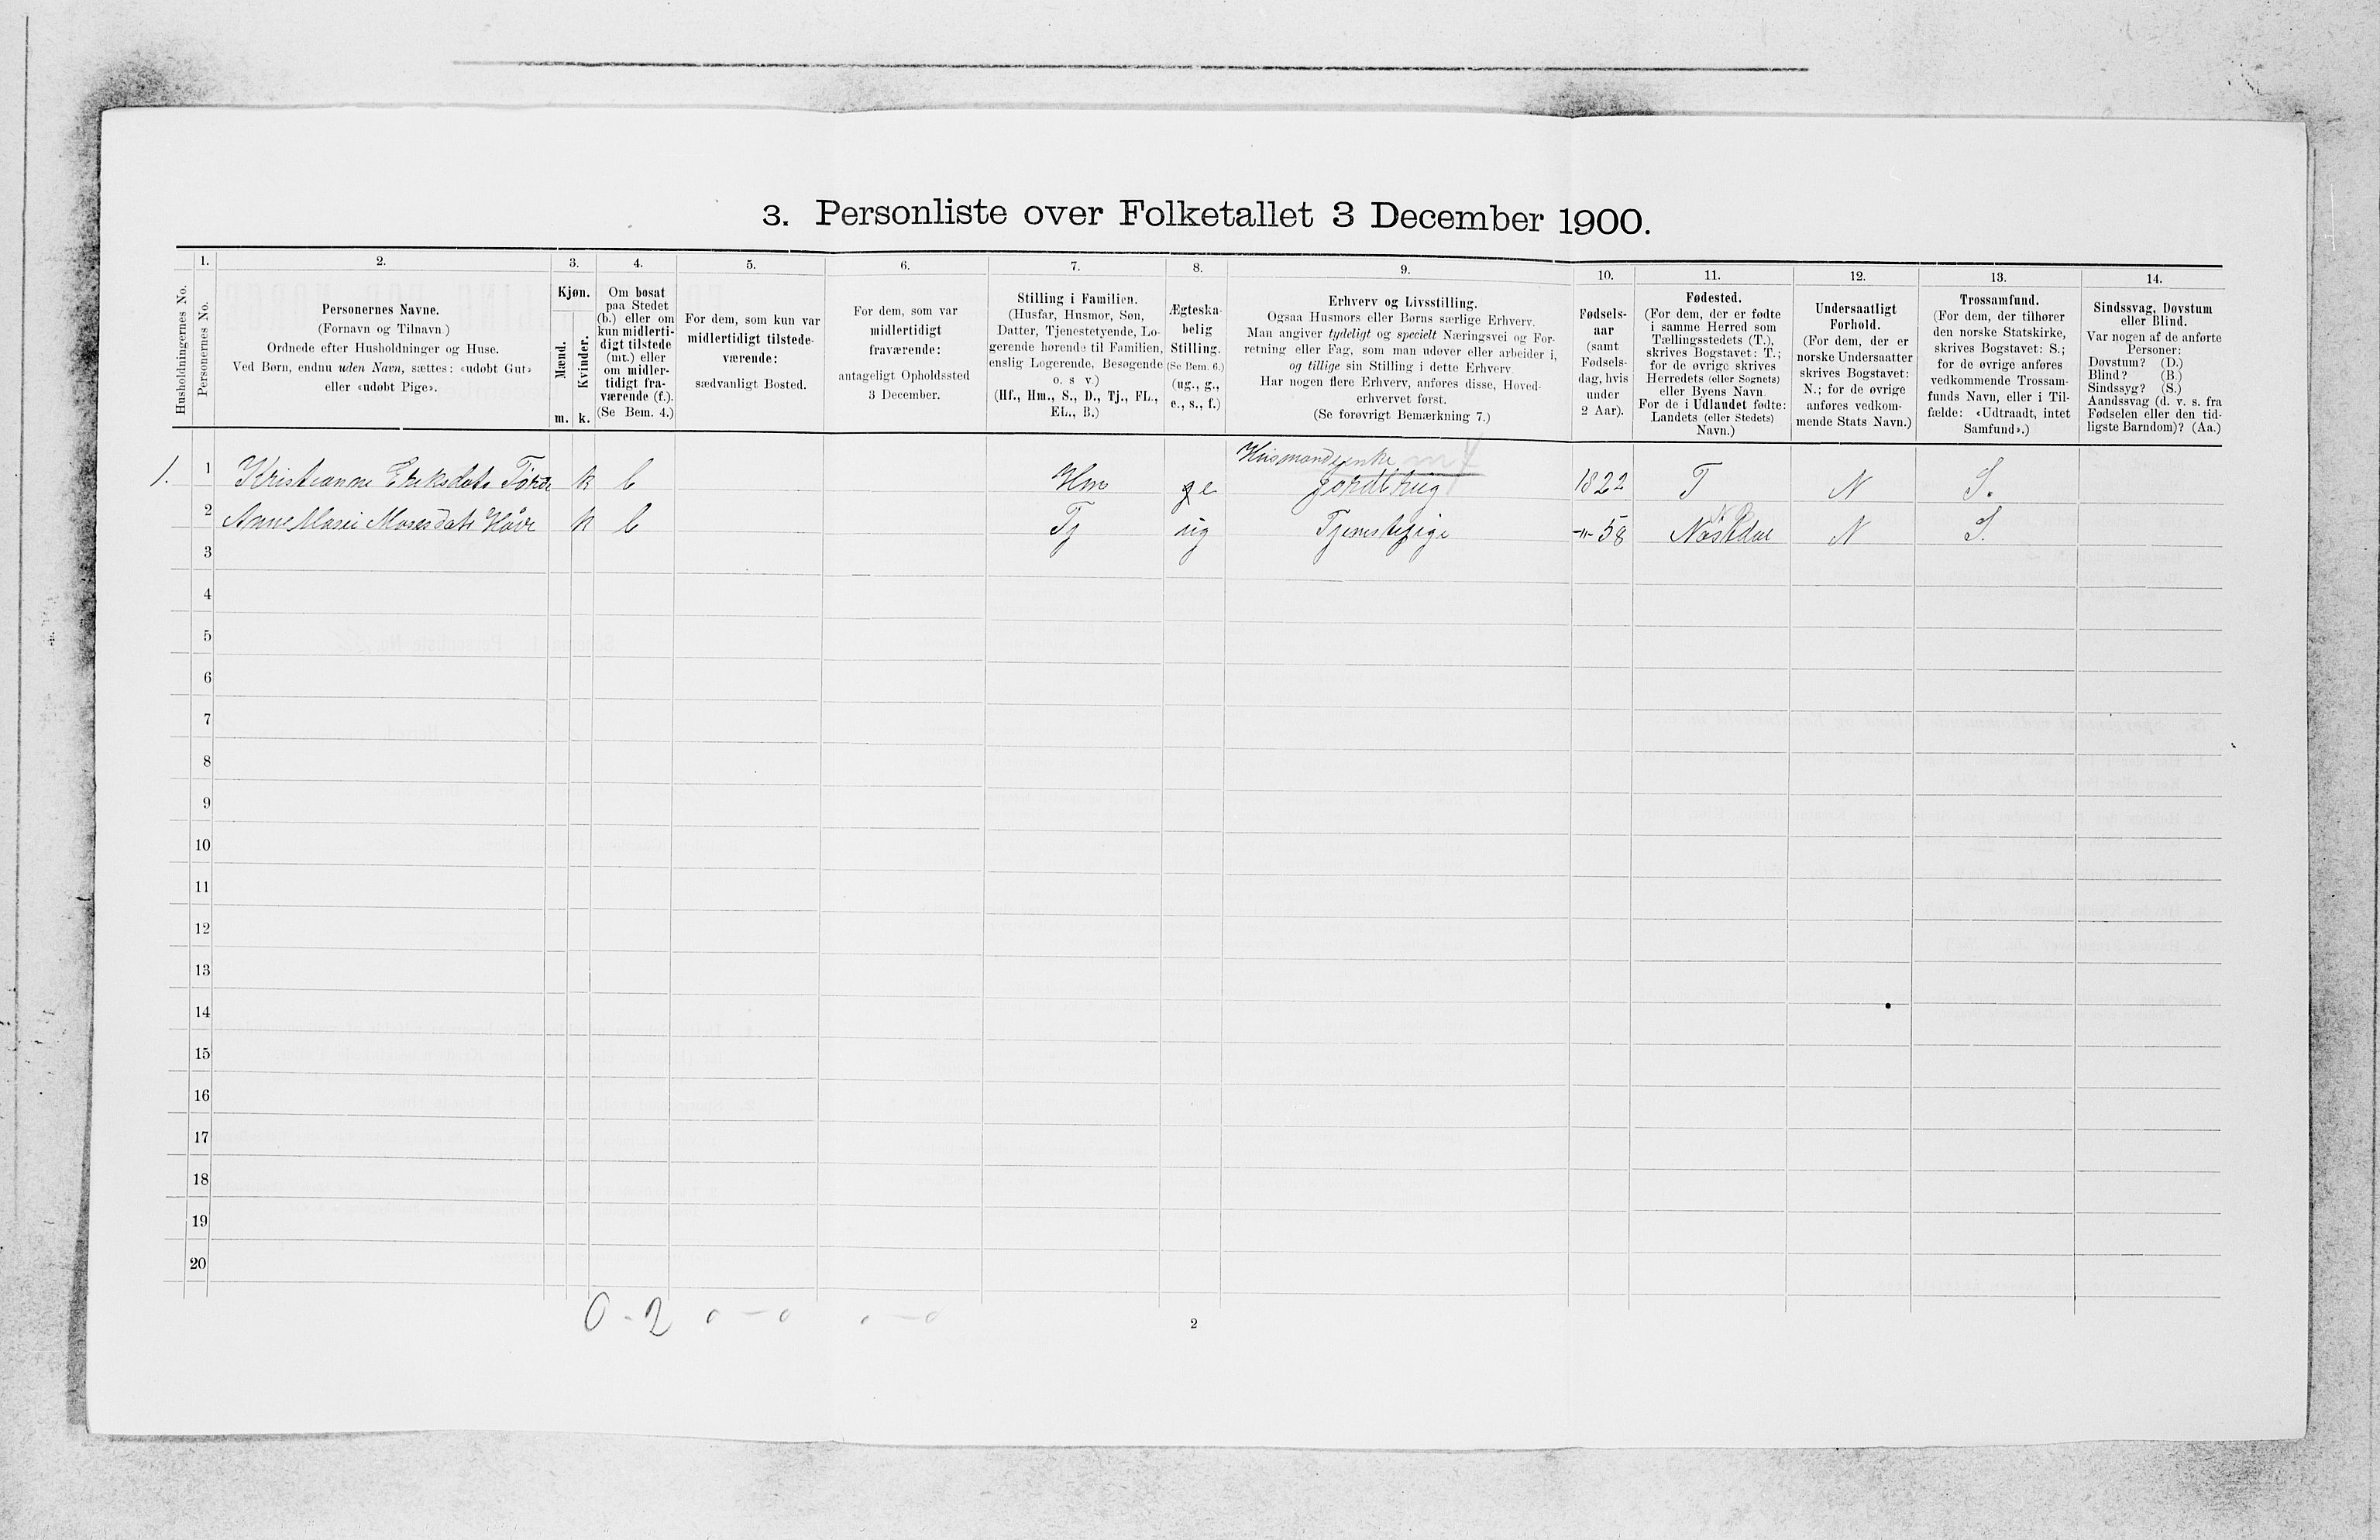 3. Personliste over Folketallet 3 December 1900.
Husholdningernes No.
1.
Personernes No.
2.
Personernes Navne.
(Fornavn og Tilnavn)
Ordnede efter Husholdninger og Huse.
Ved Børn, endnu uden Navn, sættes: «udøbt Gut»
eller «udøbt Pige».
3.
Kjøn.
Mænd.
Kvinder.
m. k.
4.
Om bosat
paa Stedet
(b.) eller om
kun midlerti-
digt tilstede
(mt.) eller
om midler-
tidigt fra-
værende (f.).
(Se Bem. 4.)
5.
For dem, som kun var
midlertidigt tilstede-
værende:
sædvanligt Bosted.
6.
For dem, som var
midlertidigt
fraværende:
antageligt Opholdssted
3 December.
7.
Stilling i Familien.
(Husfar, Husmor, Søn,
Datter, Tjenestetyende, Lo-
gerende hørende til Familien,
enslig Logerende, Besøgende
o. s v.)
(Hf., Hm., S., D., Tj., FL.,
EL., B.)
8.
Ægteska-
belig
Stilling.
(Se Bem. 6.)
(ug., g.,
e., s., f.)
9.
Erhverv og Livsstilling.
Ogsaa Husmors eller Børns særlige Erhverv.
Man angiver tydeligt og specielt Næringsvei og For-
retning eller Fag, som man udøver eller arbeider i,
og tillige sin Stilling i dette Erhverv.
Har nogen flere Erhverv, anføres disse, Hoved-
erhvervet først.
(Se forøvrigt Bemærkning 7.)
10.
Fødsels-
aar
(samt
Fødsels-
dag, hvis
under
2 Aar).
11.
Fødested.
(For dem, der er fødte
i samme Herred som
Tællingsstedets (T.),
skrives Bogstavet: T.;
for de øvrige skrives
Herredets (eller Sognets)
eller Byens Navn.
For de i Udlandet fødte:
Landets (eller Stedets)
Navn.)
12.
Undersaatligt
Forhold.
(For dem, der er
norske Undersaatter
skrives Bogstavet:
N.; for de øvrige
anføres vedkom-
mende Stats Navn.)
13.
Trossamfund.
(For dem, der tilhører
den norske Statskirke,
skrives Bogstavet: S.;
for de øvrige anføres
vedkommende Trossam-
funds Navn, eller i Til-
fælde: «Udtraadt, intet
Samfund».)
14.
Sindssvag, Døvstum
eller Blind.
Var nogen af de anførte
Personer:
Døvstum? (D.)
Blind? (B.)
Sindssyg? (S.)
Aandssvag (d. v. s. fra
Fødselen eller den tid-
ligste Barndom)? (Aa.)
Husmandsenke
1. 1 Eriksdatr k b Hm g e Jordbrug 1822 T N S.
2 Anne Marie Mosesdatr k b Tj ug Tjenestepige -"- 58 N S.
3
4
5
6
7
8
9
10
11
12
13
14
15
16
17
18
19
20
0 - 2 0 - 0 0 - 0
2